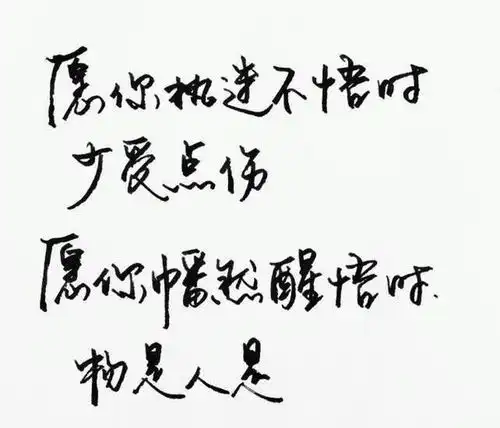 愿你执迷不悟时
少爱点伤
愿你幡然醒悟时.
物是人是